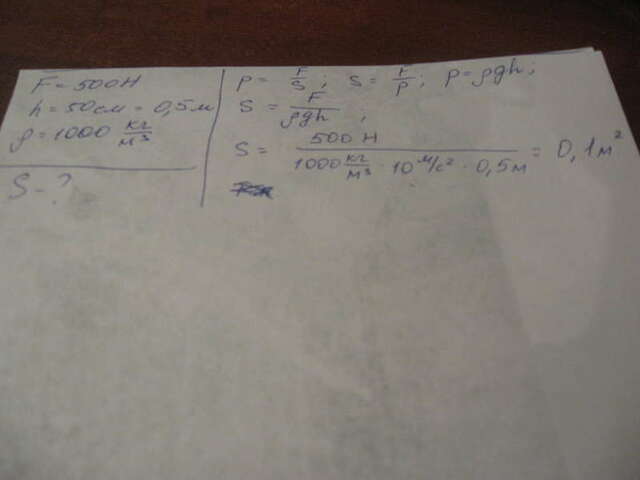 F = 500 Н
h = 50 см = 0,5 м
ρ = 1000 кг/м³
S - ?
p = F/S ; S = F/p ; p = ρgh ;
S = F/ρgh ;
S = 500 Н / 1000 кг/м³ · 10 м/с² · 0,5 м = 0,1 м²